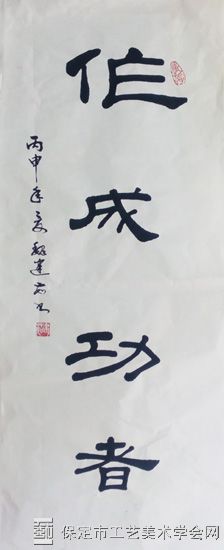 作成功者
丙申年夏
保定市工艺美术学会网